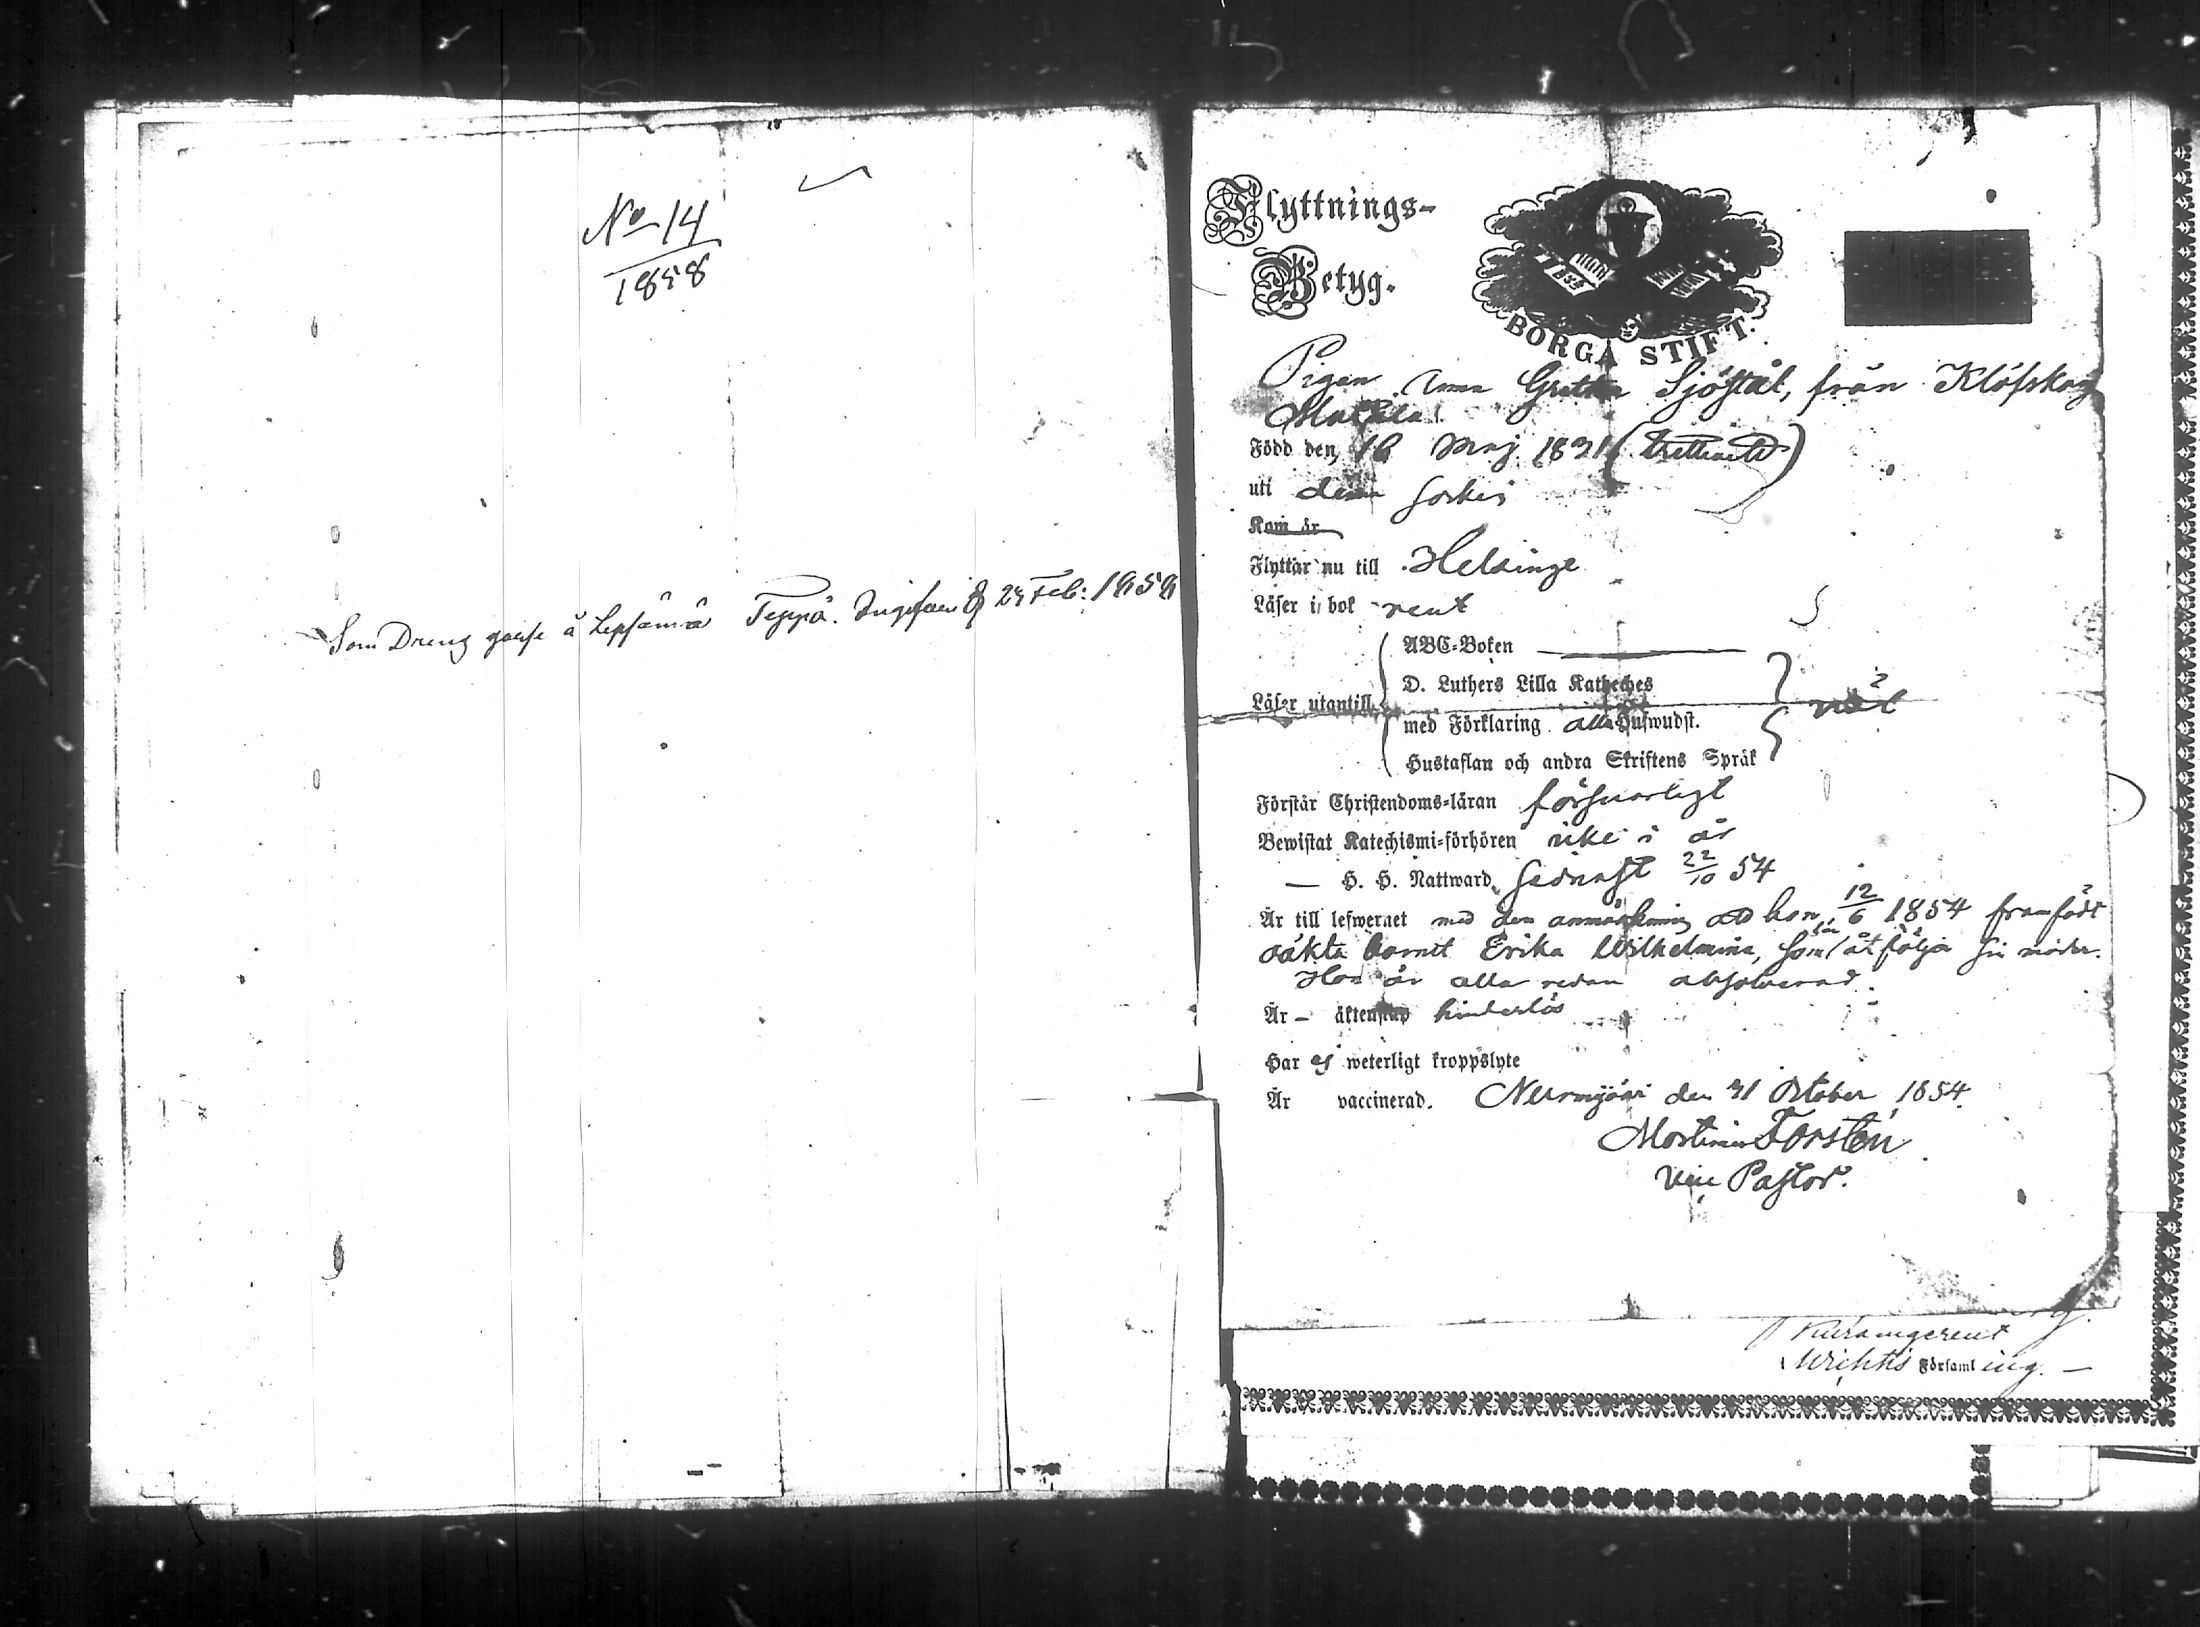 No 14
1858
Som Dreng à Lepsämä Teppo. 24 Feb: 1858
Flyttnings-
Betyg.
BORGÅ STIFT.
Pigan Anna Greta Sjöstål, från Klöfskog
Mattila
Född den 16 Maj 1831 (trettioett)
uti denna socken
Kom år
Flyttar nu till Helsinge
Läser i bok rent
ABC-Boken
D. Luthers Lilla Katheches
Läser utantill
med Förklaring alla Hufwudst.
Hustaflan och andra Skriftens Språk
väl
Förstår Christendoms-läran försvarligt
Bewistat Katechismi-förhören icke i år
— H. H. Nattward senast 22/10 54
Är till lefwernet med den anmärkning att hon 12/6 1854 framfödt
oäkta barnet Erika Wilhelmina, som får åtfölja sin moder.
Hon är allaredan absolverad.
Är — äktenskap hinderlös
Har ej weterligt kroppslyte
Är vaccinerad. Nurmijärvi den 31 October 1854.
Forstén
Vice Pastor.
Wichtis Församling. —